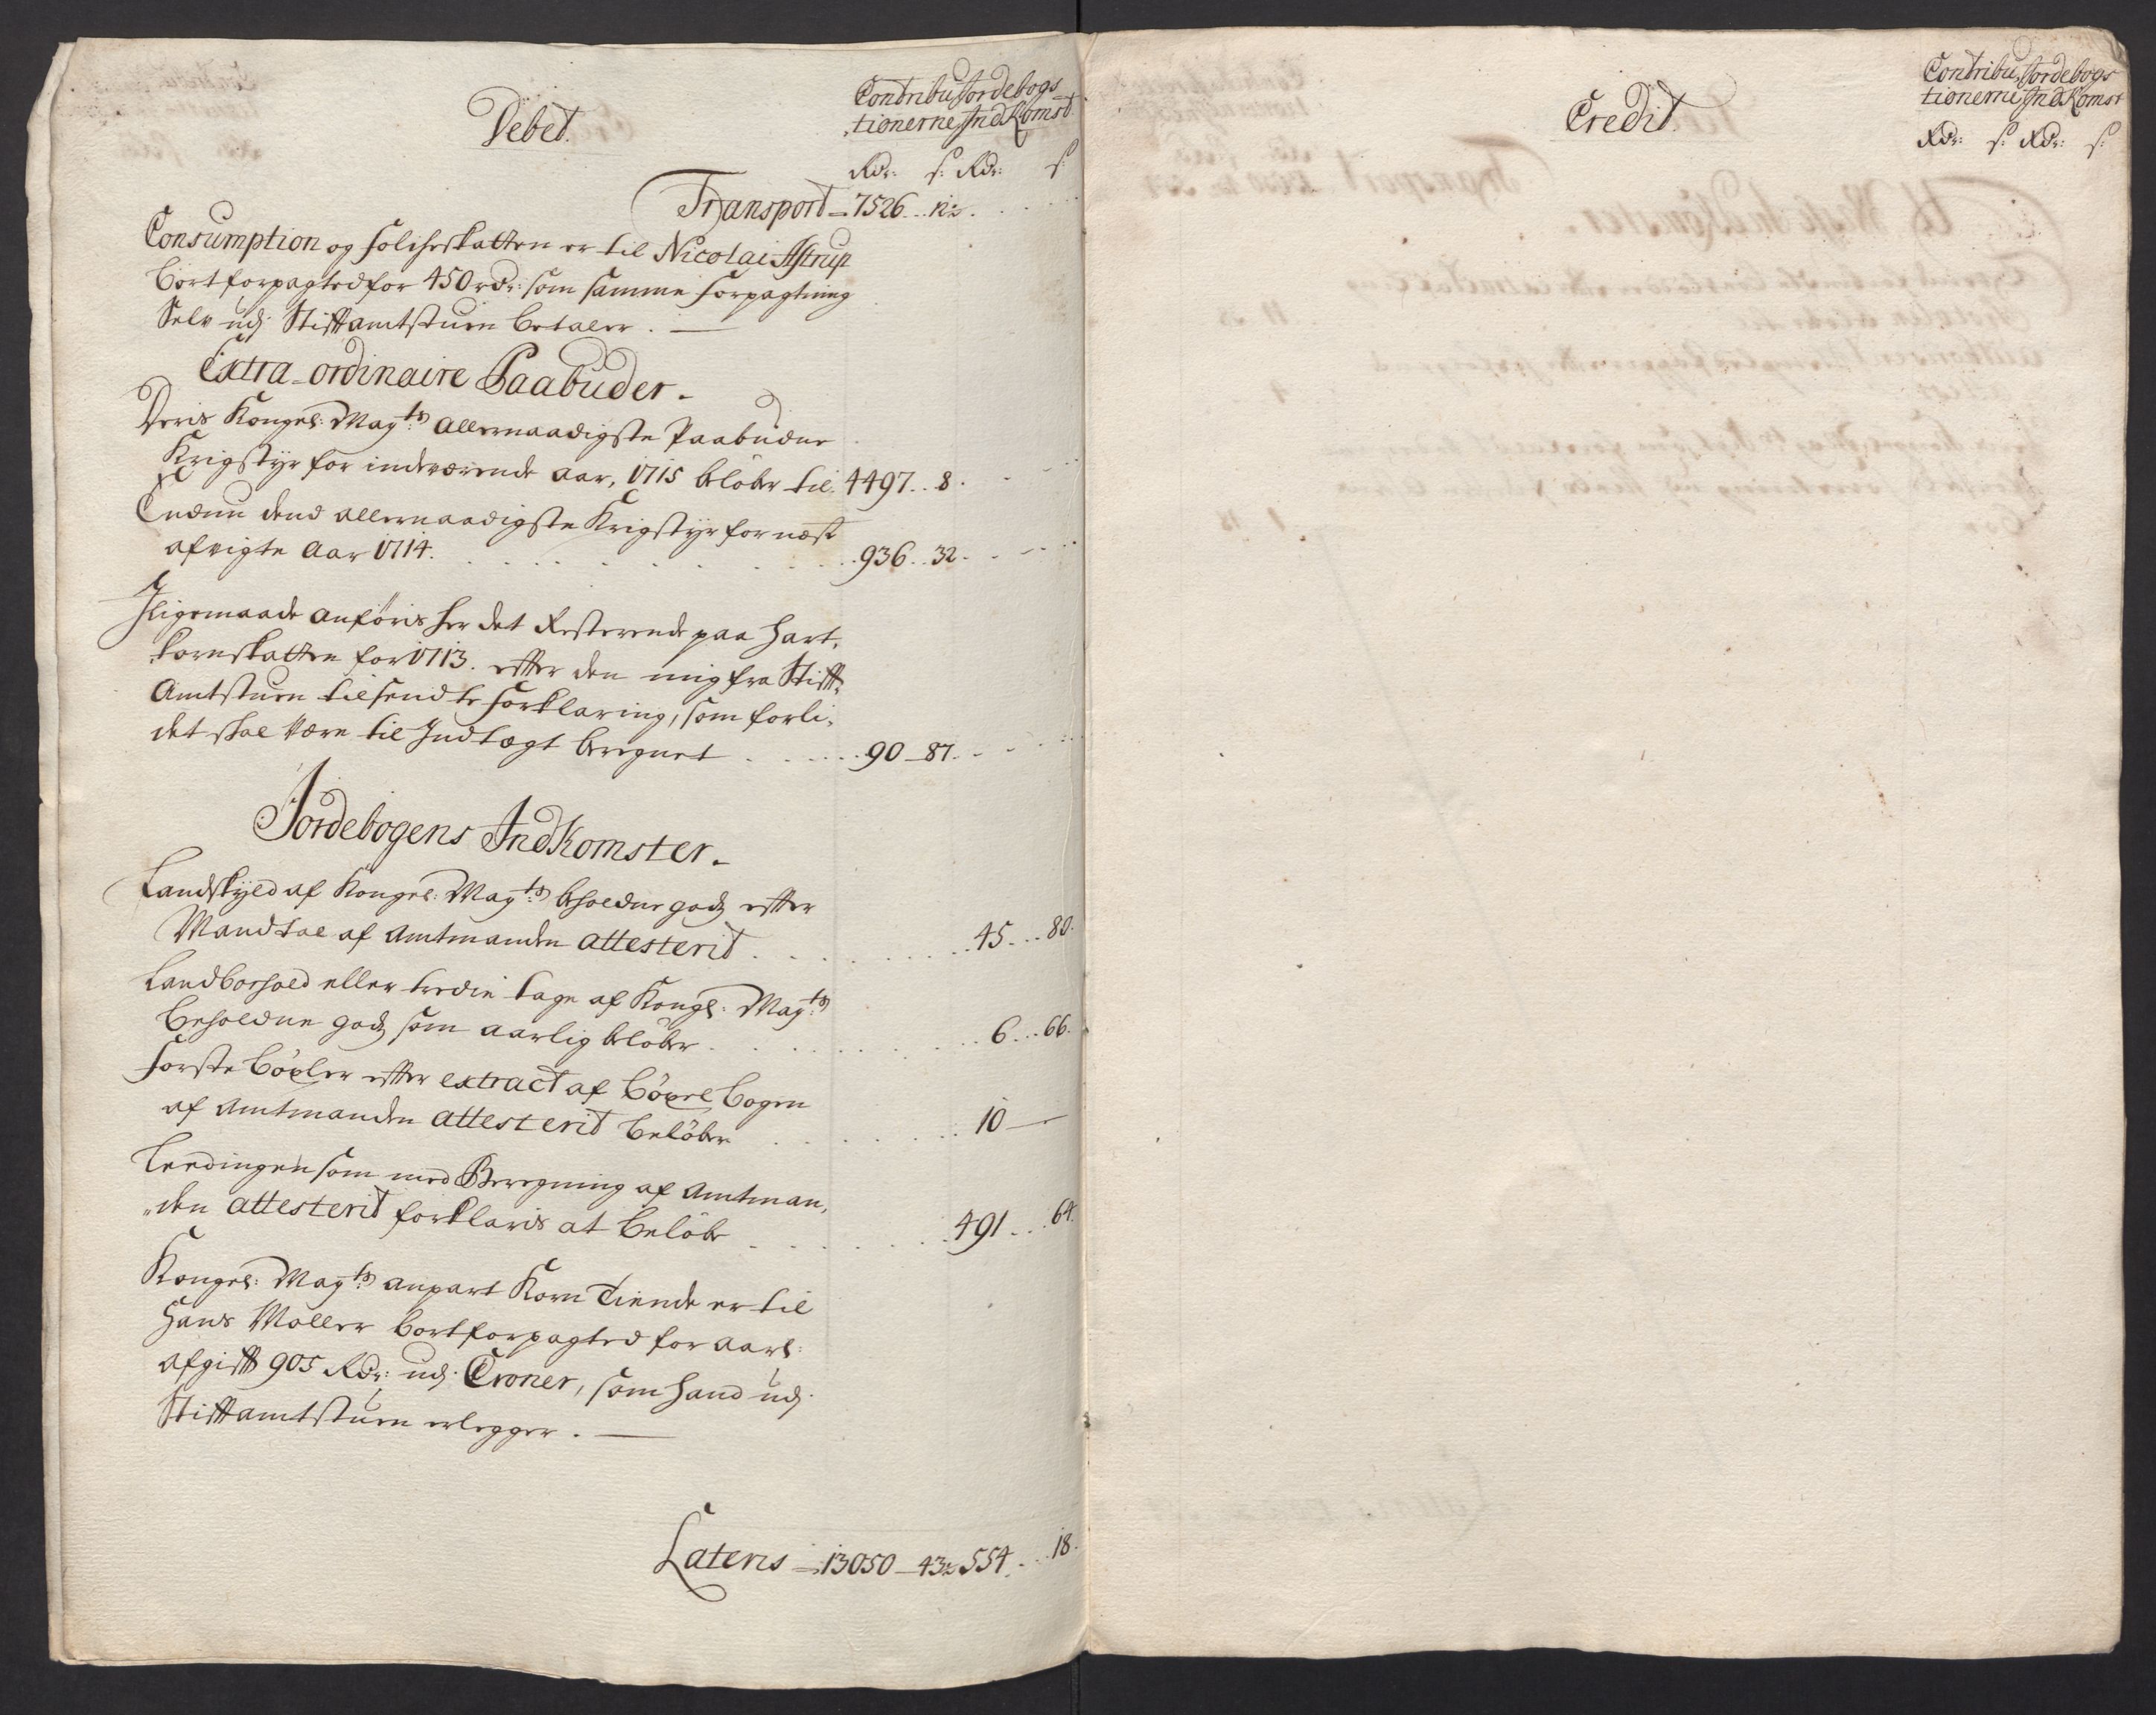 Debet.
Contribu, Jordebogs
tionerne IndKomst
Rdr: s: Rdr: s:
Transport 7526 12½
Consumption og folcheskatten er til Nicolai Astrup
bortforpagted for 450 rdr: som samme forpagtning
Selv udj Stifftamtstuen betaler.
Extra ordinaire Paabuder.
Deris Kongel: Mayts allernaadigste Paabudne
Krigstyr for indeværende aar, 1715 beløber til 4497 8
Endnu dend allernaadigste Krigstyr for næst
afvigte Aar 1714. 936 32
Iligemaade anføris her det Resterende paa Hart,
kornskatten for 1713. efter den mig fra Stifft,
Amtstuen tilsendte forklaring, som forli,
det skal være til Indtægt beregnet 90 87
Jordebogens IndKomster.
Landskyld af Kongel: Mayts beholdne godz efter
Mandtal af Amtmanden attesterit 45 80
Landborhold eller tredie tage af Kongl: Mayts
beholdne godz som aarlig beløber 6 66
Første bøxler efter extract af bøxel bogen
af Amtmanden attesterit beløber 10
Leedingen som med Beregning af Amtman,
den attesterit forklaris at beløbe 491 64
Kongel: Mayts anpart Korn Tiende er til
Hans Møller bortforpagted for aarl:
afgifft 905 Rdr: udj Croner, som hand udj
Stifftamtstuen erlegger.
Lateris 13050 43½ 554 18
Credit.
Contribu, Jordebogs
tionerne IndKomst
Rdr: s: Rdr: s: